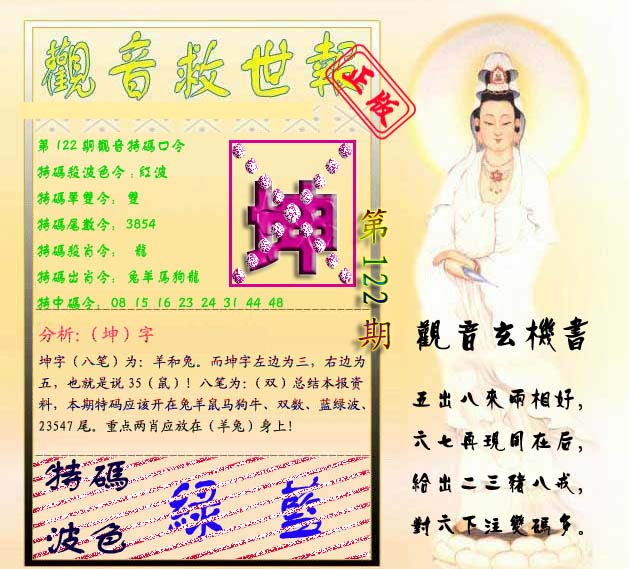 觀音救世報
正版
第122期觀音特碼口令
特碼殺波色令:紅波
特碼單雙令: 雙
特碼尾數令: 3854
特碼殺肖令: 龍
特碼出肖令: 兔羊馬狗龍
特中碼令: 08 15 16 23 24 31 44 48
坤
第122期
分析:(坤)字
坤字（八笔）为：羊和兔。而坤字左边为三，右边为
五，也就是说35（鼠）！八笔为：（双）总结本报资
料，本期特码应该开在兔羊鼠马狗牛、双数、蓝绿波、
23547尾。重点两肖应放在（羊兔）身上！
特碼
波色
綠 藍
觀音玄機書
五出八來兩相好，
六七再現同在后，
給出二三豬八戒，
對六下注雙碼多。